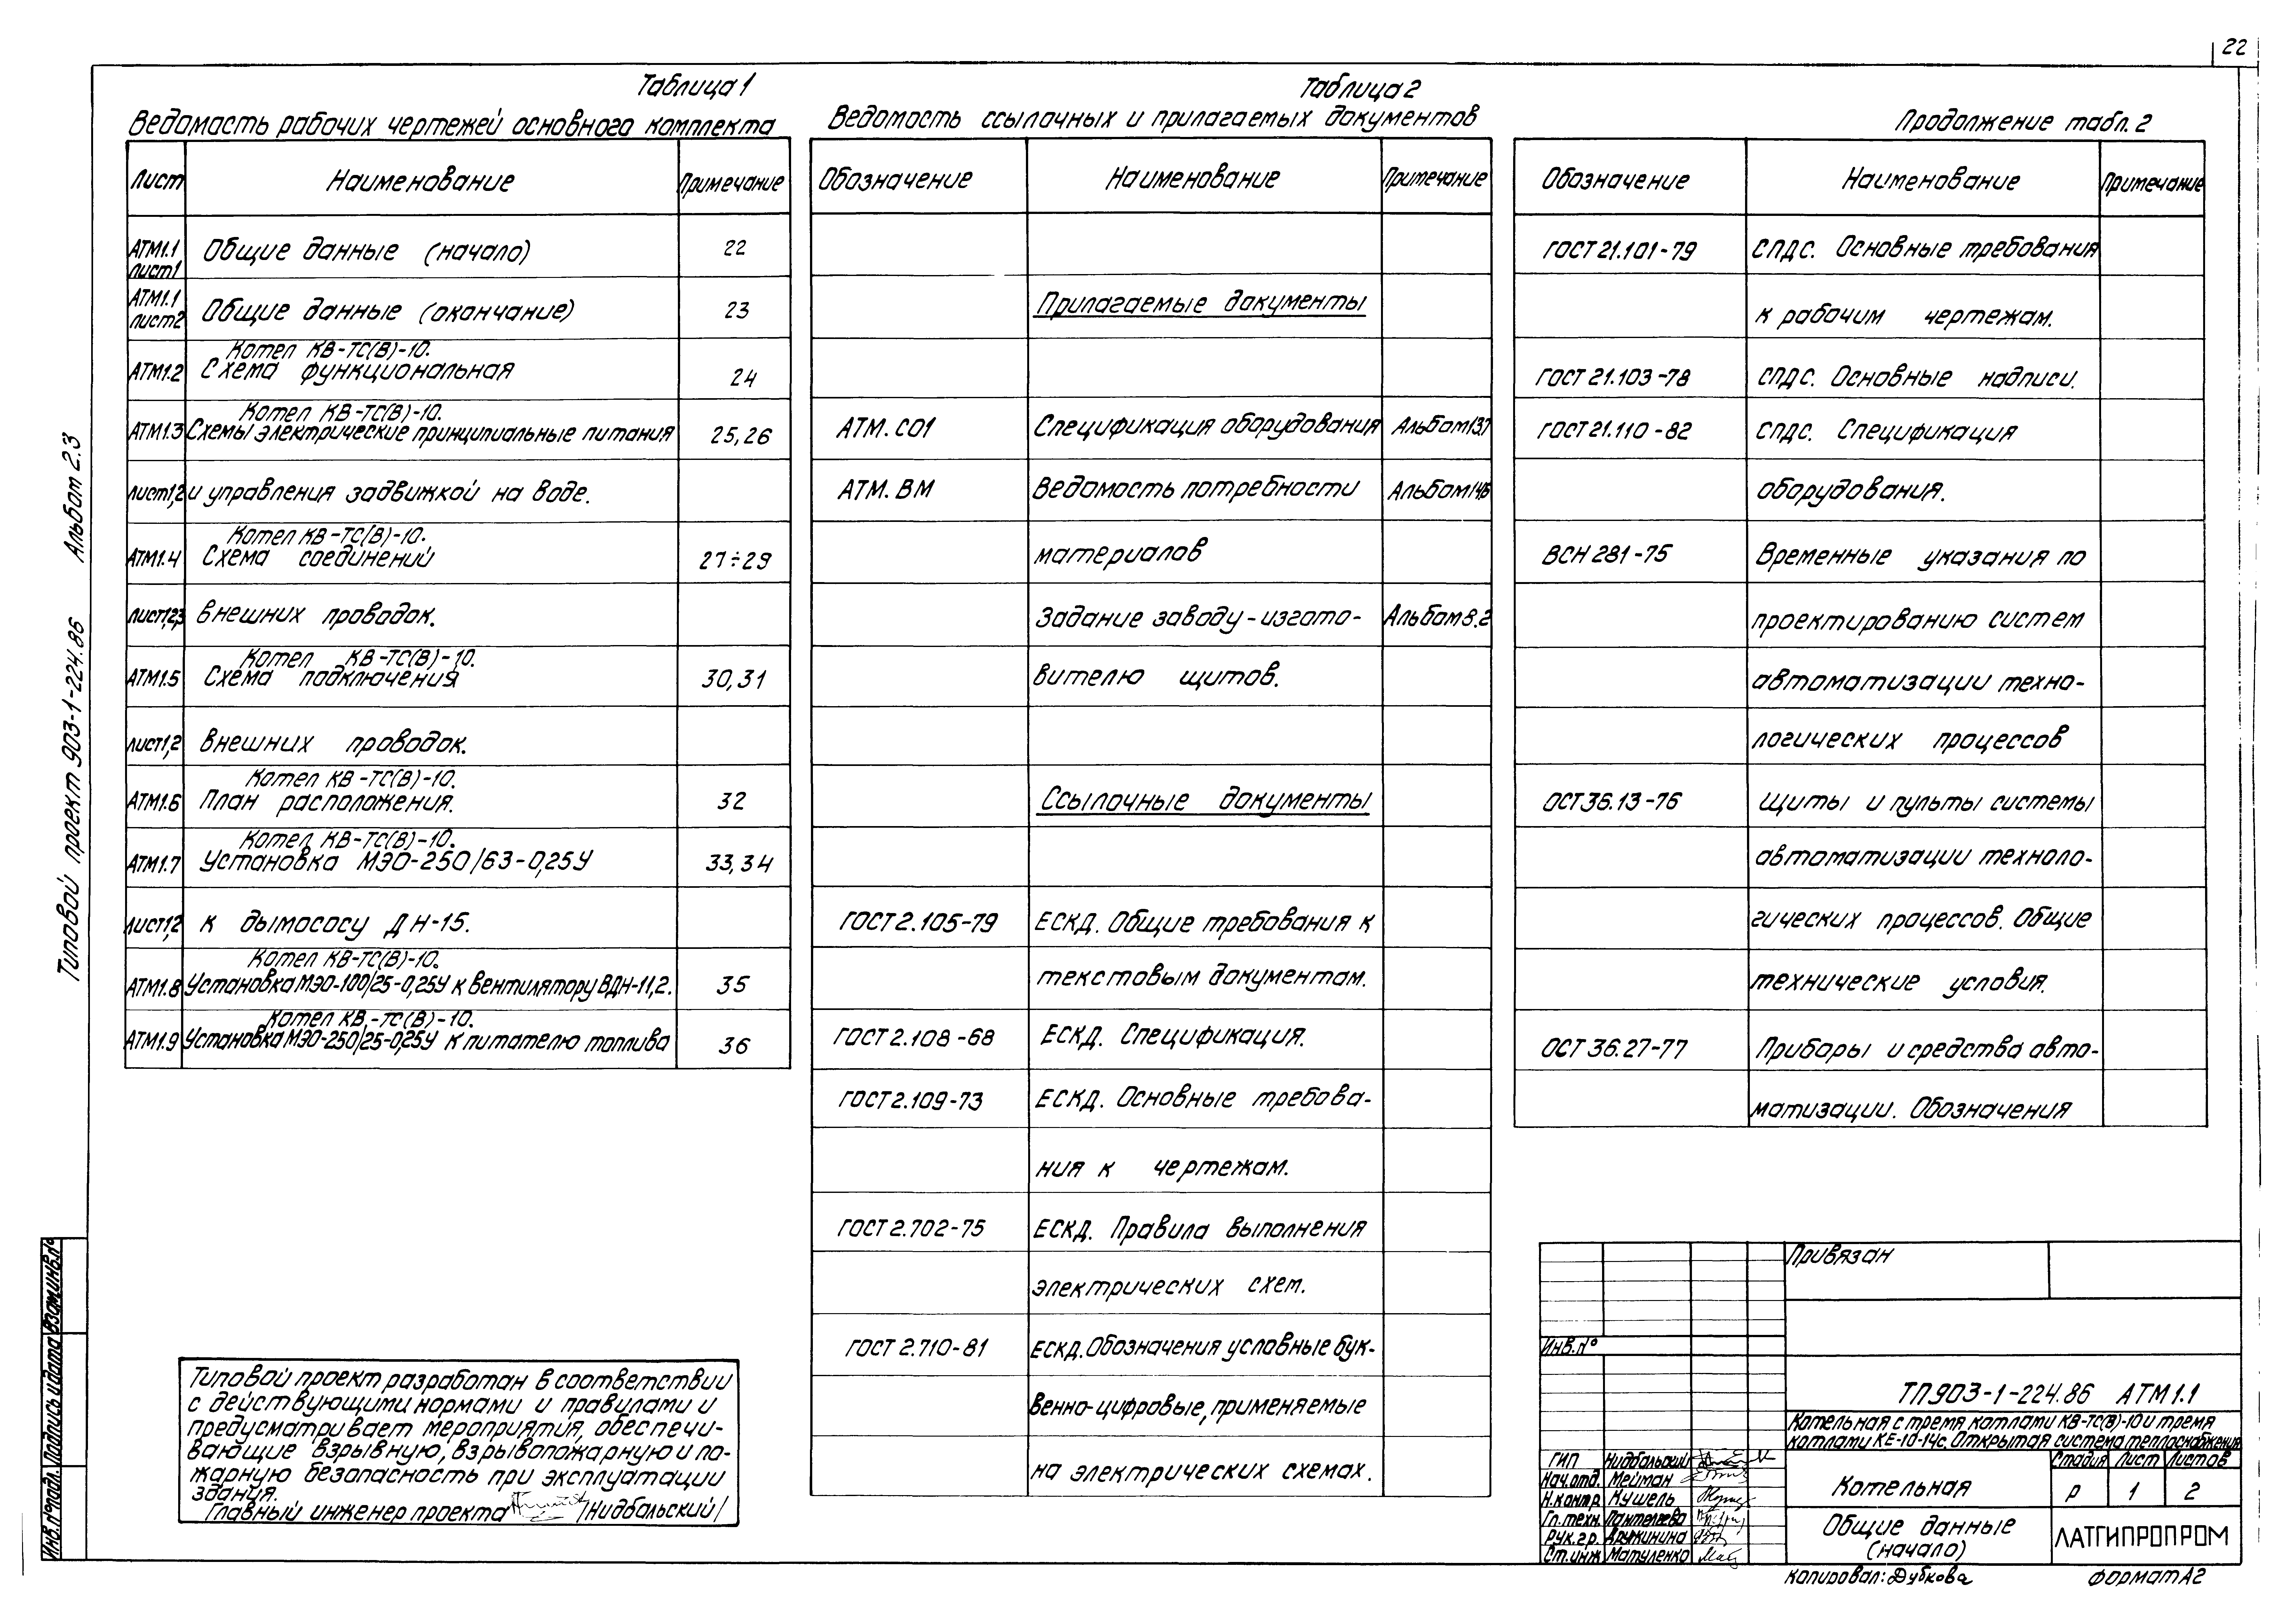 22
Таблица 1
Ведомость рабочих чертежей основного комплекта
Лист Наименование Примечание
АТМ1.1 лист1 Общие данные (начало) 22
АТМ1.1 лист2 Общие данные (окончание) 23
Котел КВ-ТС(В)-10.
АТМ1.2 Схема функциональная 24
Котел КВ-ТС(В)-10.
АТМ1.3 Схемы электрические принципиальные питания 25,26
лист1,2 и управления задвижкой на воде.
Котел КВ-ТС(В)-10.
АТМ1.4 Схема соединений 27÷29
Лист1,2,3 внешних проводок.
Котел КВ-ТС(В)-10.
АТМ1.5 Схема подключения 30,31
лист1,2 внешних проводок.
Котел КВ-ТС(В)-10.
АТМ1.6 План расположения. 32
Котел КВ-ТС(В)-10.
АТМ1.7 Установка МЭО-250/63-0,25У 33,34
лист1,2 к дымососу ДН-15.
Котел КВ-ТС(В)-10.
АТМ1.8 Установка МЭО-100/25-0,25У к вентилятору ВДН-11,2. 35
Котел КВ-ТС(В)-10.
АТМ1.9 Установка МЭО-250/25-0,25У к питателю топлива 36
Таблица 2
Ведомость ссылочных и прилагаемых документов
Обозначение Наименование Примечание
Прилагаемые документы
АТМ.СО1 Спецификация оборудования Альбом
АТМ.ВМ Ведомость потребности Альбом
материалов
Задание заводу-изгото- Альбом 8.2
вителю щитов.
Ссылочные документы
ГОСТ 2.105-79 ЕСКД. Общие требования к
текстовым документам.
ГОСТ 2.108-68 ЕСКД. Спецификация.
ГОСТ 2.109-73 ЕСКД. Основные требова-
ния к чертежам.
ГОСТ 2.702-75 ЕСКД. Правила выполнения
электрических схем.
ГОСТ 2.710-81 ЕСКД. Обозначения условные бук-
венно-цифровые, применяемые
на электрических схемах.
Продолжение табл. 2
Обозначение Наименование Примечание
ГОСТ 21.101-79 СПДС. Основные требования
к рабочим чертежам.
ГОСТ 21.103-78 СПДС. Основные надписи.
ГОСТ 21.110-82 СПДС. Спецификация
оборудования.
ВСН 281-75 Временные указания по
проектированию систем
автоматизации техно-
логических процессов
ОСТ 36.13-76 Щиты и пульты системы
автоматизации техноло-
гических процессов. Общие
технические условия.
ОСТ 36.27-77 Приборы и средства авто-
матизации. Обозначения
Типовой проект 903-1-224.86 Альбом 2.3
Взам.инв.№
Подпись и дата
Инв.№ подл.
Типовой проект разработан в соответствии
с действующими нормами и правилами и
предусматривает мероприятия, обеспечи-
вающие взрывную, взрывопожарную и по-
жарную безопасность при эксплуатации
здания.
Главный инженер проекта /Нидбальский/
Привязан
Инв.№
ТП 903-1-224.86 АТМ1.1
Котельная с тремя котлами КВ-ТС(В)-10 и тремя
котлами КЕ-10-14с. Открытая система теплоснабжения
ГИП Нидбальский
Нач.отд. Мейман
Н.контр. Мушель
Гл.техн. Пантелеева
Рук.гр. Дружинина
Ст.инж Матуленко
Стадия Лист Листов
Котельная Р 1 2
Общие данные
(начало)
ЛАТГИПРОПРОМ
Копировал: Дубкова Формат А2